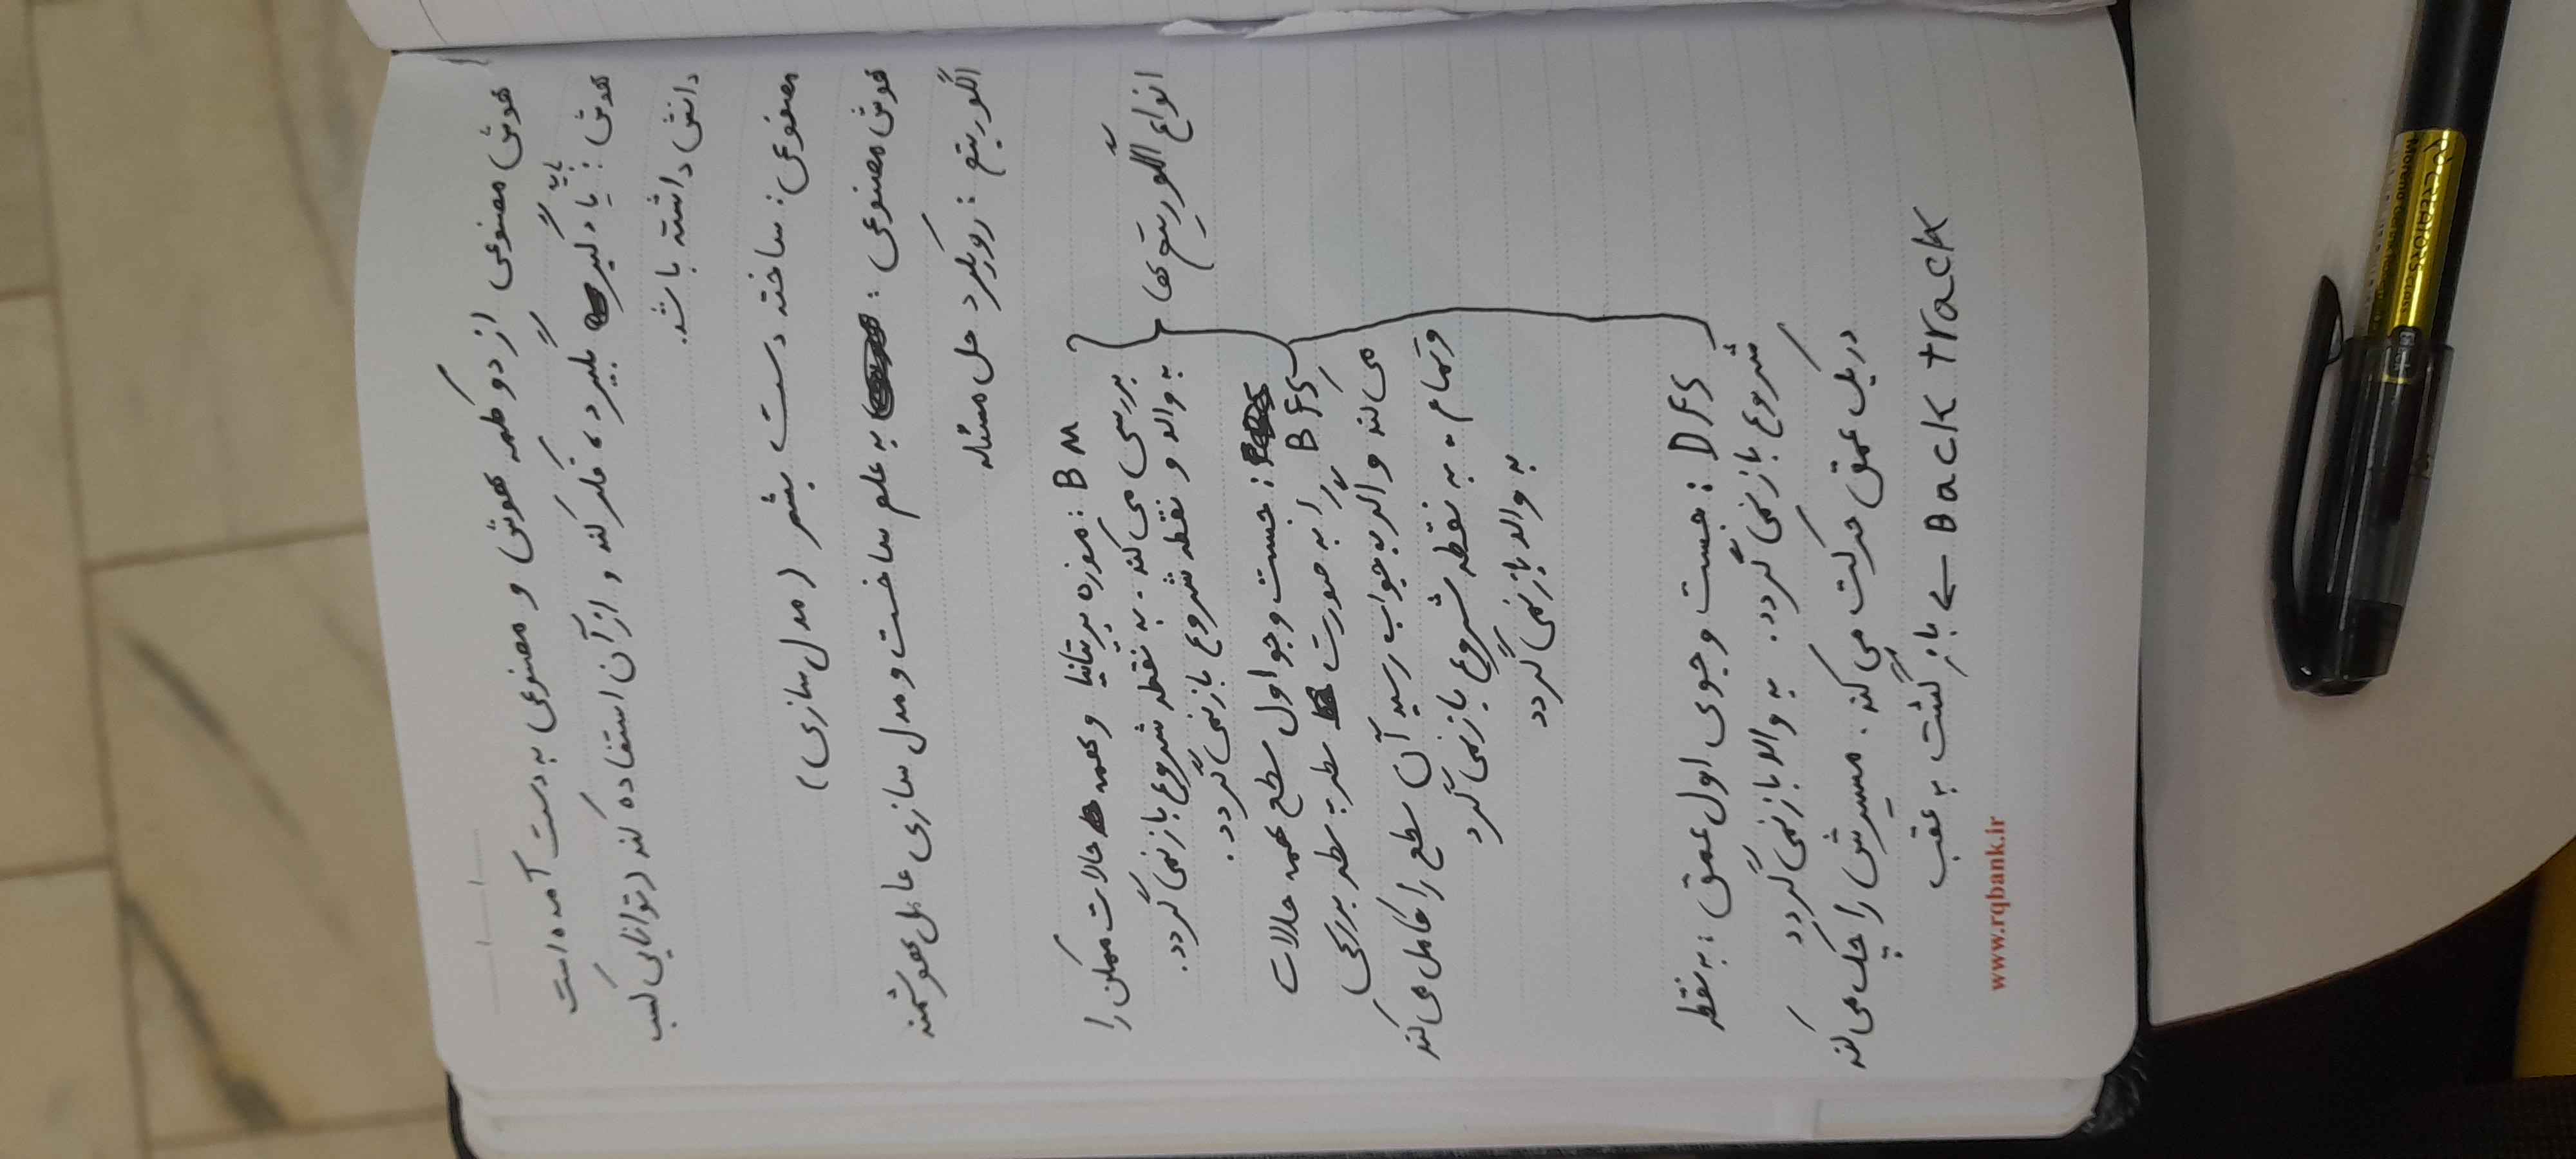 هوش مصنوعی از دو کلمه هوش و مصنوعی به دست آمده است
هوش : باید یاد بگیرد، فکر کند و از آن استفاده کند (توانایی کسب
دانش داشته باشد.
مصنوعی : ساخته دست بشر (مدل سازی)
هوش مصنوعی : به علم ساخت و مدل سازی عامل هوشمند
الگوریتم : رویکرد حل مسئله
انواع الگوریتم ها
BM : موزه بریتانیا و همه حالات ممکن را
بررسی می کند . به نقطه شروع باز نمی گردد .
به والد و نقطه شروع باز نمی گردد .
BFS : جست و جو اول سطح همه حالات
را به صورت سطر به سطر بررسی
می کند و اگر به جواب رسید آن سطح را کامل می کند
و تمام . به نقطه شروع باز نمی گرد
به والد باز نمی گردد
DFS : جست و جوی اول عمق : به نقطه
شروع باز نمی گردد . به والد باز نمی گردد
در یک عمق حرکت می کند . مسیرش را چک می کند
Back track ← باز گشت به عقب
www.rqbank.ir
CREATORS CLASS